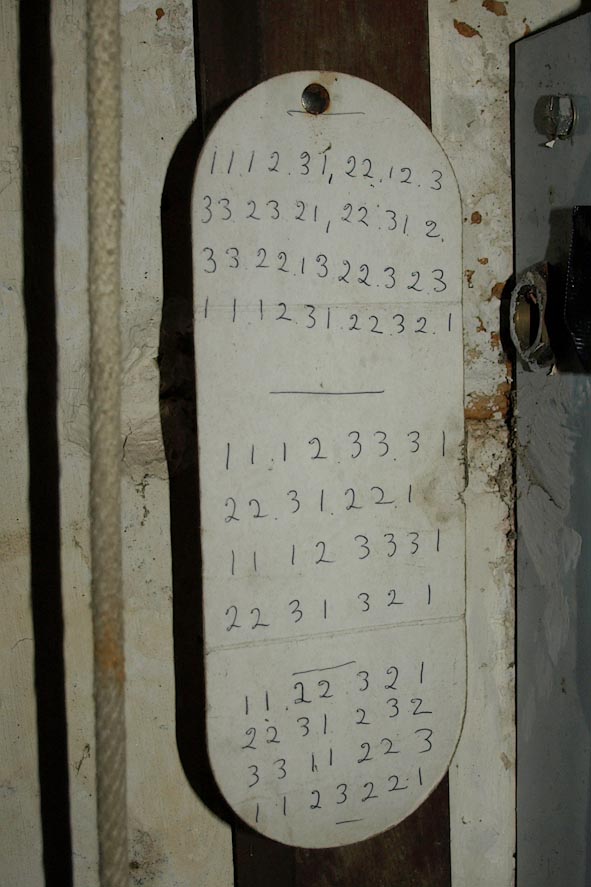 111 2.31, 22.12.3
33.23.21, 22.31 2.
33.22.13.22.3 2.3
1 1.12.31.22 3 2.1
11.1 2.33.31
22.31.22.1
11 12 3331
22 31 321
11.22.321
22 31.232
33 11 223
1 1 2 3 2 2.1